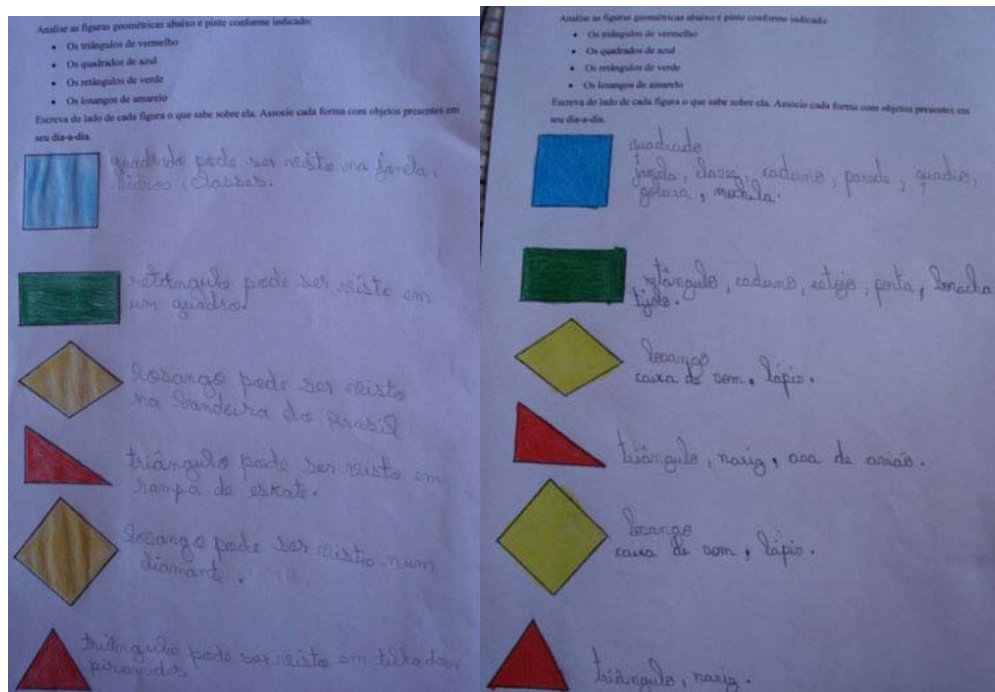 Analise as figuras geométricas abaixo e pinte conforme indicado:
• Os triângulos de vermelho
• Os quadrados de azul
• Os retângulos de verde
• Os losangos de amarelo
Escreva do lado de cada figura o que sabe sobre ela. Associe cada forma com objetos presentes em
seu dia-a-dia.
quadrado pode ser visto na janela,
vidros, classes.
retângulo pode ser visto em
um quadro.
losango pode ser visto
na bandeira do Brasil
triângulo pode ser visto em
rampa de eskate.
losango pode ser visto num
diamante.
triângulo pode ser visto em
piramides
Analise as figuras geométricas abaixo e pinte conforme indicado:
• Os triângulos de vermelho
• Os quadrados de azul
• Os retângulos de verde
• Os losangos de amarelo
Escreva do lado de cada figura o que sabe sobre ela. Associe cada forma com objetos presentes em
seu dia-a-dia.
quadrado
janela, classe, caderno, parede, quadro,
mochila.
retângulo, caderno, estojo, porta, borracha
tijolo.
losango
caixa de som, lápis.
triângulo, nariz, asa de avião.
losango
caixa de som, lápis.
triângulo, nariz.